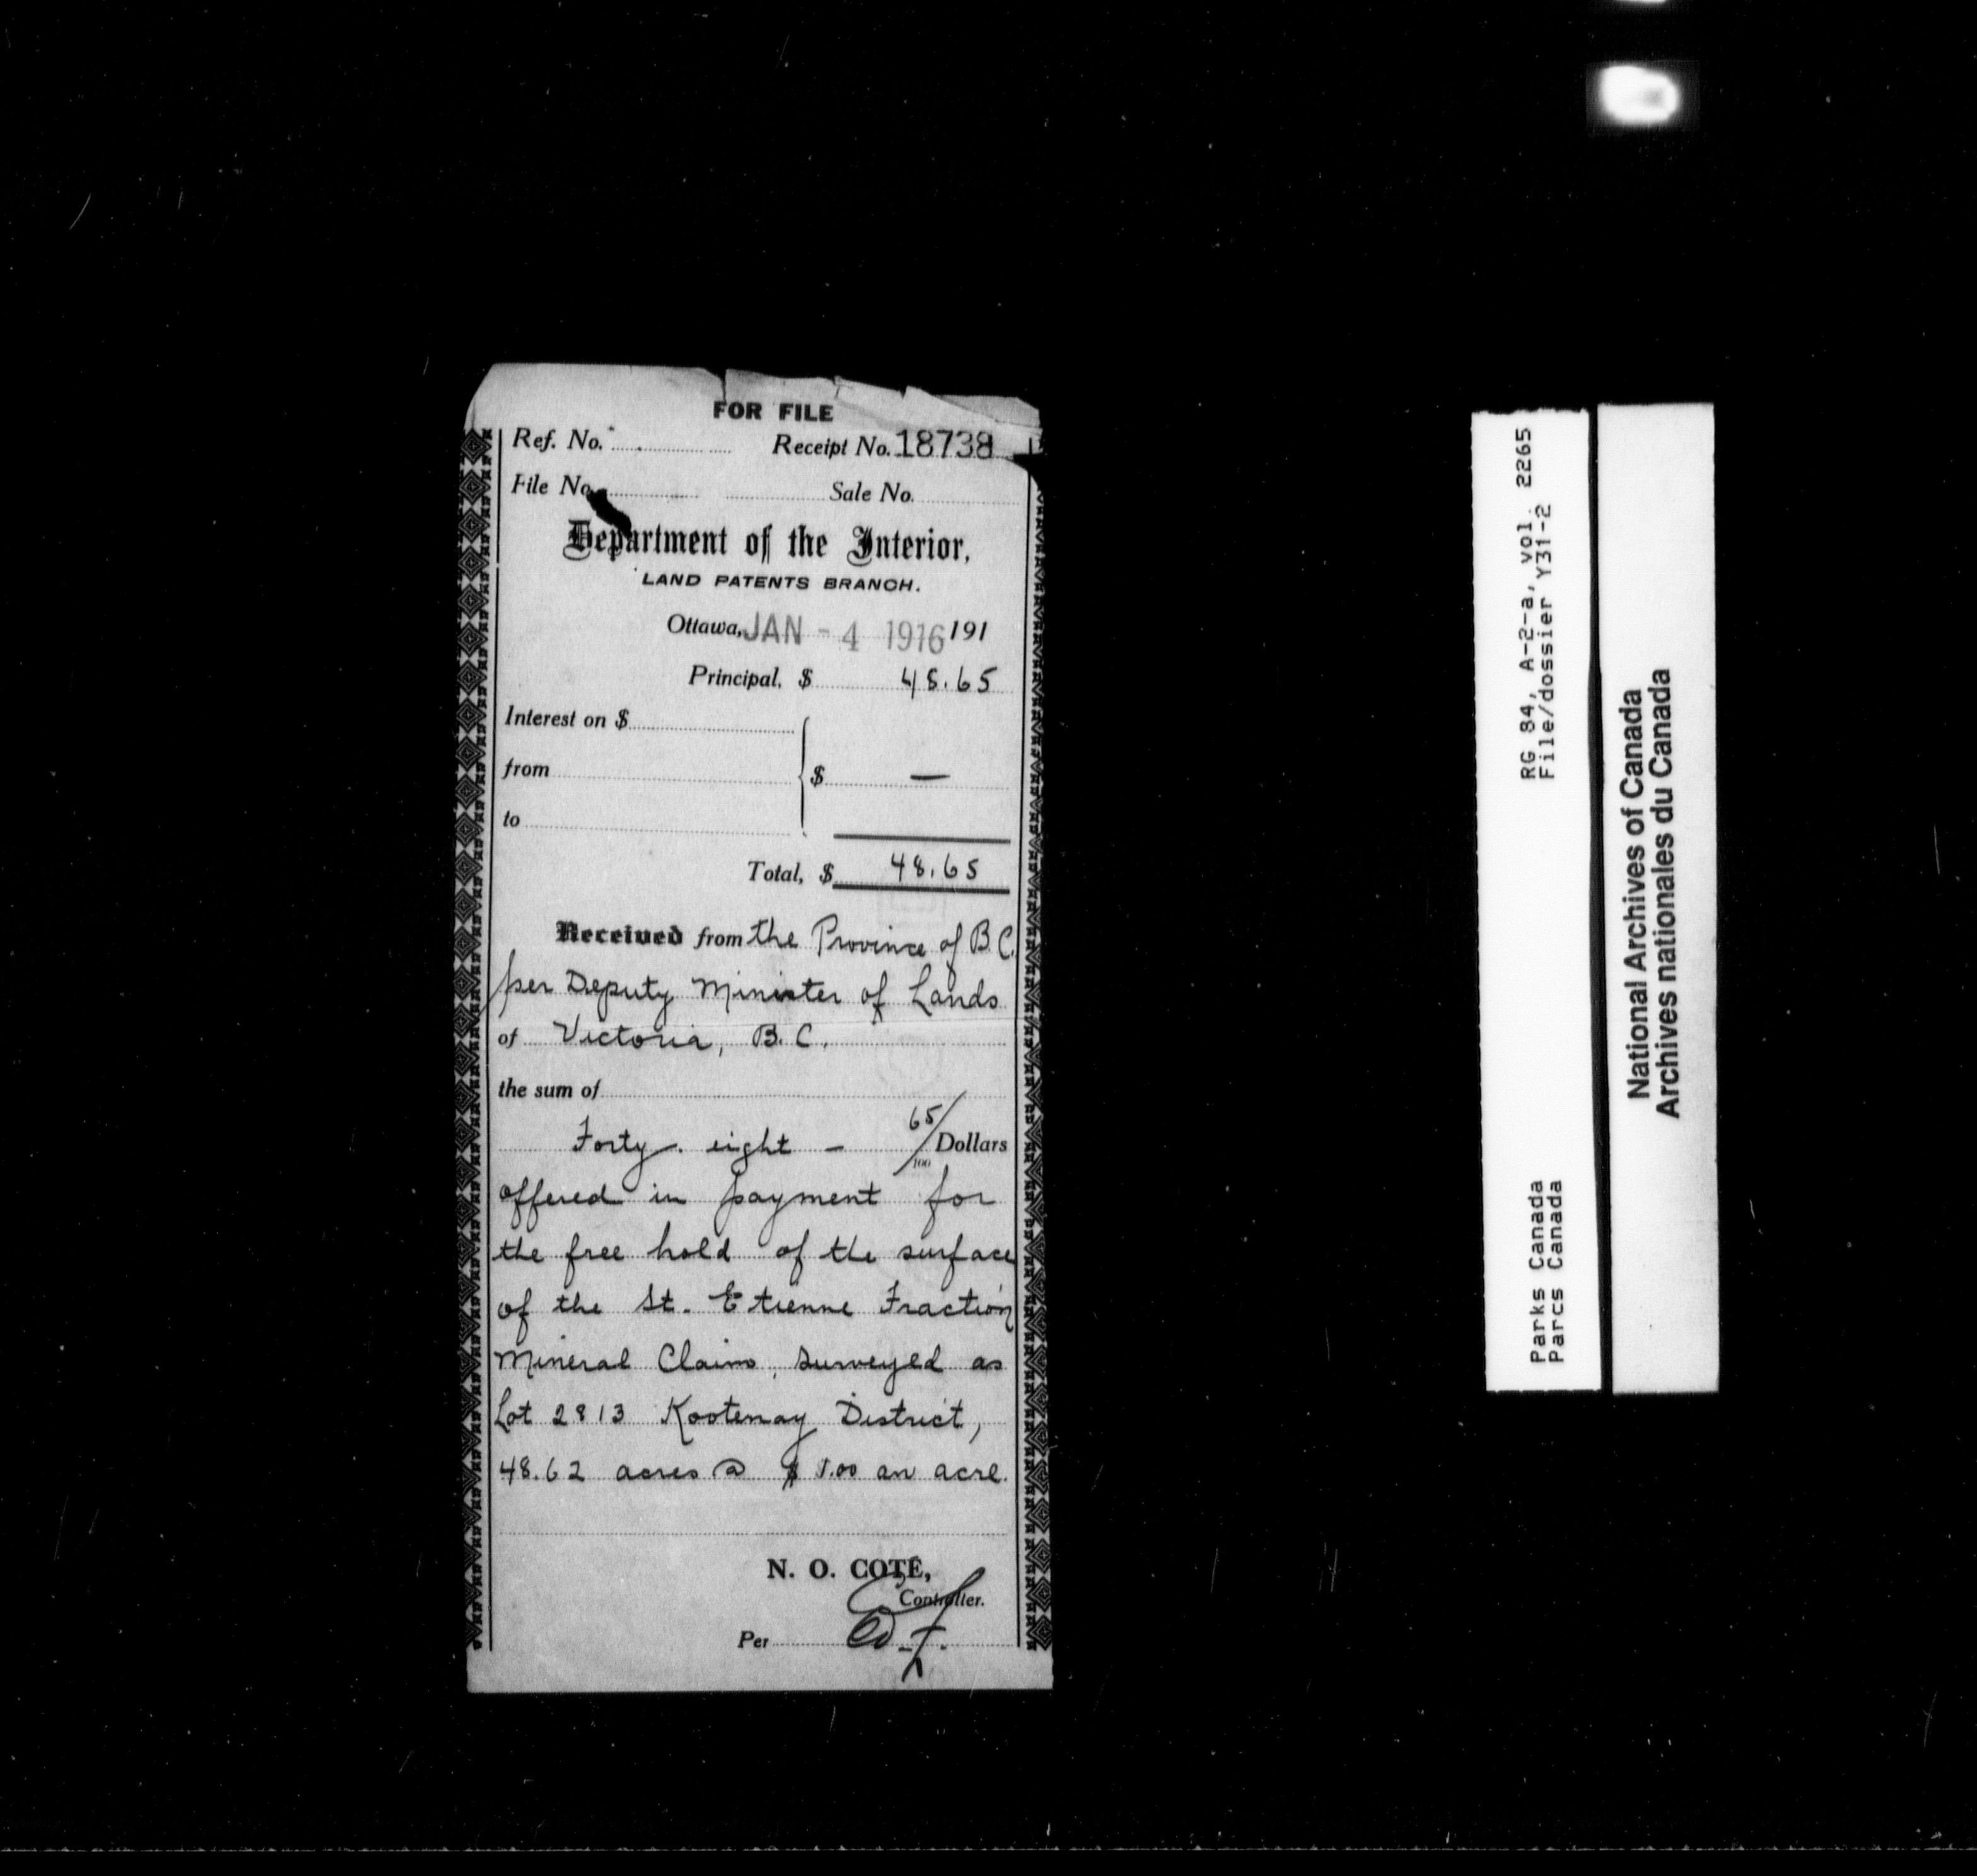 FOR FILE
Ref. No. Receipt No. 18738
File No. Sale No.
Department of the Interior,
LAND PATENTS BRANCH.
Ottawa, JAN - 4 1916 191
Principal, $ 48.65
Interest on $
from $ —
to
Total, $ 48.65
Received from the Province of B.C.
per Deputy Minister of Lands
of Victoria, B.C.
the sum of
Forty-eight — 65/100 Dollars
offered in payment for
the free hold of the surface
of the St. Etienne Fraction
Mineral Claim, surveyed as
Lot 2813 Kootenay District,
48.62 acres @ $1.00 an acre.
N. O. COTÉ,
Controller.
Per
RG 84, A-2-a, vol. 2265
File/dossier Y31-2
Parks Canada
Parcs Canada
National Archives of Canada
Archives nationales du Canada